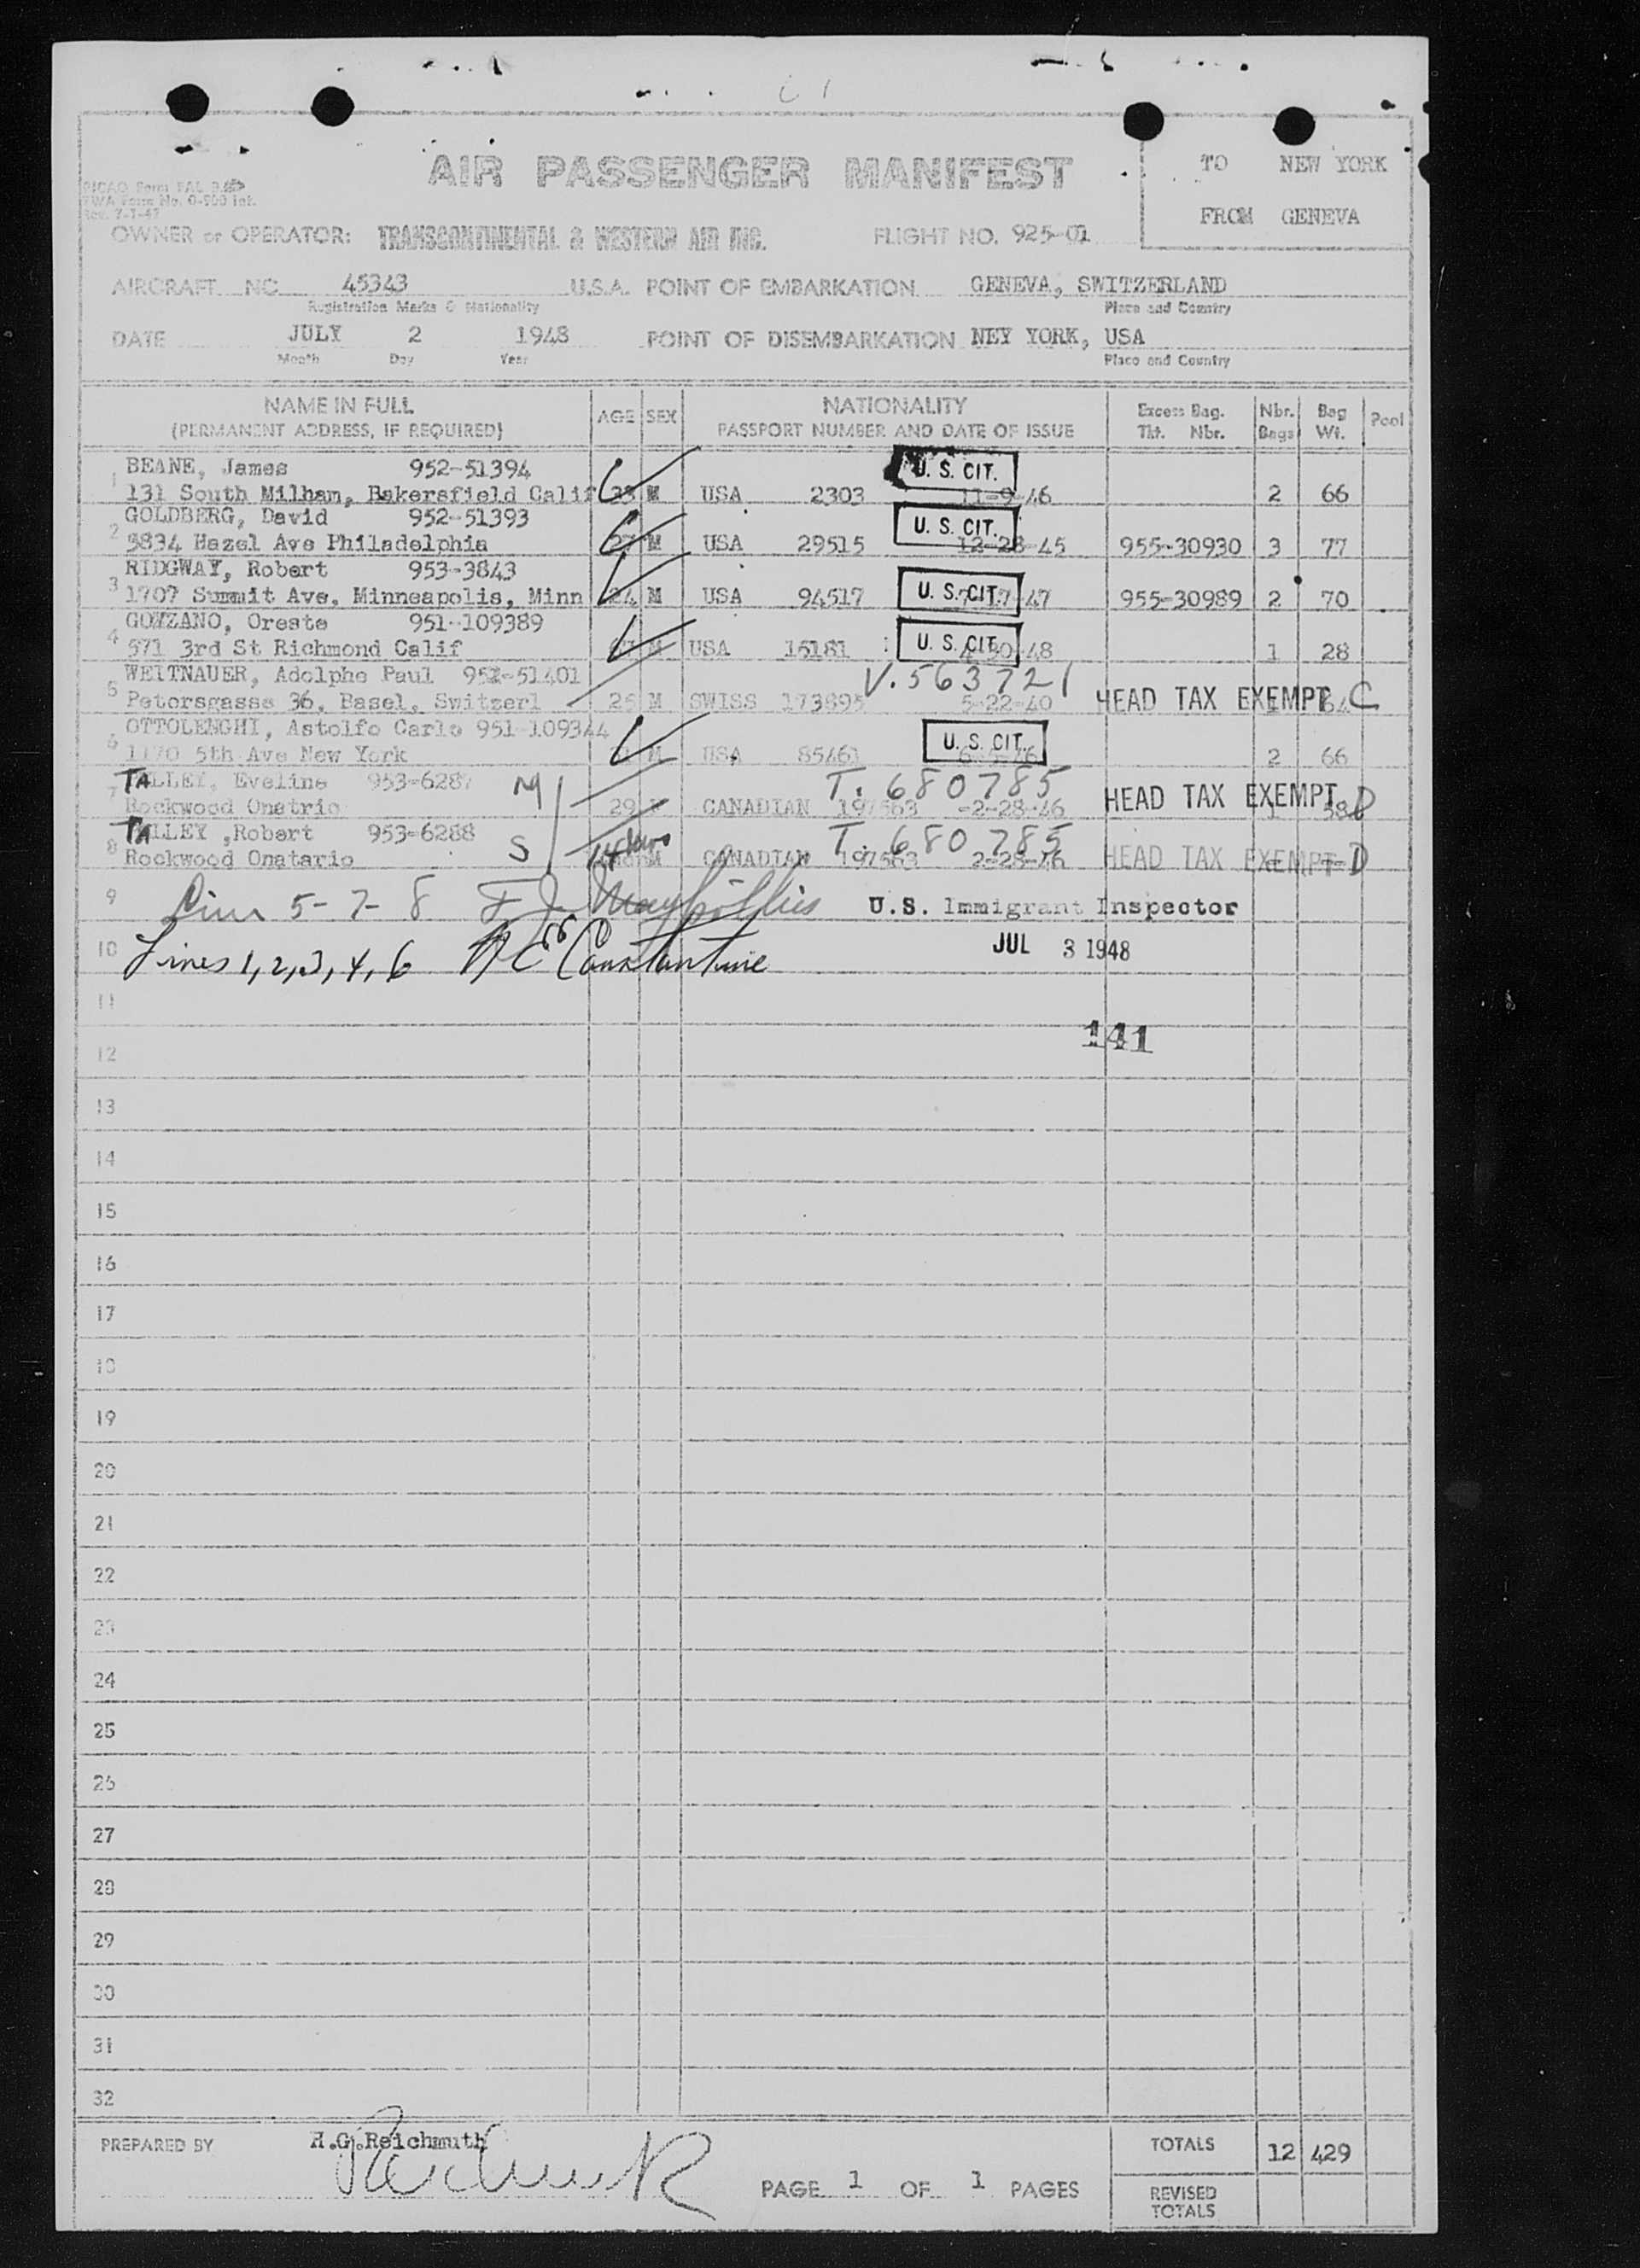 AIR PASSENGER MANIFEST
TO NEW YORK
FROM GENEVA
TWA Form No. 0-900 Int.
Rev. 7-1-47
OWNER or OPERATOR: TRANSCONTINENTAL & WESTERN AIR INC. FLIGHT NO. 925-01
AIRCRAFT NC 45343 U.S.A. POINT OF EMBARKATION GENEVA, SWITZERLAND
Registration Marks & Nationality Place and Country
DATE JULY 2 1948 POINT OF DISEMBARKATION NEY YORK, USA
Month Day Year Place and Country
NAME IN FULL AGE SEX NATIONALITY Excess Bag. Nbr. Bag Pool
(PERMANENT ADDRESS, IF REQUIRED) PASSPORT NUMBER AND DATE OF ISSUE Tkt. Nbr. Bags Wt.
BEANE, James 952-51394 U. S. CIT.
1 131 South Milham, Bakersfield Calif M USA 2303 11-9-46 2 66
GOLDBERG, David 952-51393 U. S. CIT.
2 5834 Hazel Ave Philadelphia 27 M USA 29515 12-28-45 955-30930 3 77
RIDGWAY, Robert 953-3843
3 1707 Summit Ave, Minneapolis, Minn 24 M USA 94517 U. S. CIT. 47 955-30989 2 70
GOZZANO, Oreste 951-109389
4 571 3rd St Richmond Calif M USA 15181 U. S. CIT. 48 1 28
WEITNAUER, Adolphe Paul 952-51401 V. 563721
5 Petersgasse 36, Basel, Switzerl 25 M SWISS 173895 5-22-40 HEAD TAX EXEMPT C
OTTOLENGHI, Astolfo Carlo 951-109344 U. S. CIT.
6 1170 5th Ave New York M USA 85461 2 66
TALLEY, Eveline 953-6287 M T. 680785
7 Rockwood Onatrio 29 CANADIAN 197563 -2-28-46 HEAD TAX EXEMPT 58 D
TALLEY ,Robert 953-6288 S T. 680785
8 Rockwood Onatario M CANADIAN 197563 2-28-46 HEAD TAX EXEMPT D
9 5-7-8 U.S. Immigrant Inspector
10 Lines 1,2,3,4,6 Constantine JUL 3 1948
11
141
12
13
14
15
16
17
18
19
20
21
22
23
24
25
26
27
28
29
30
31
32
PREPARED BY H.G.Reichmuth TOTALS 12 429
PAGE 1 OF 1 PAGES REVISED
TOTALS